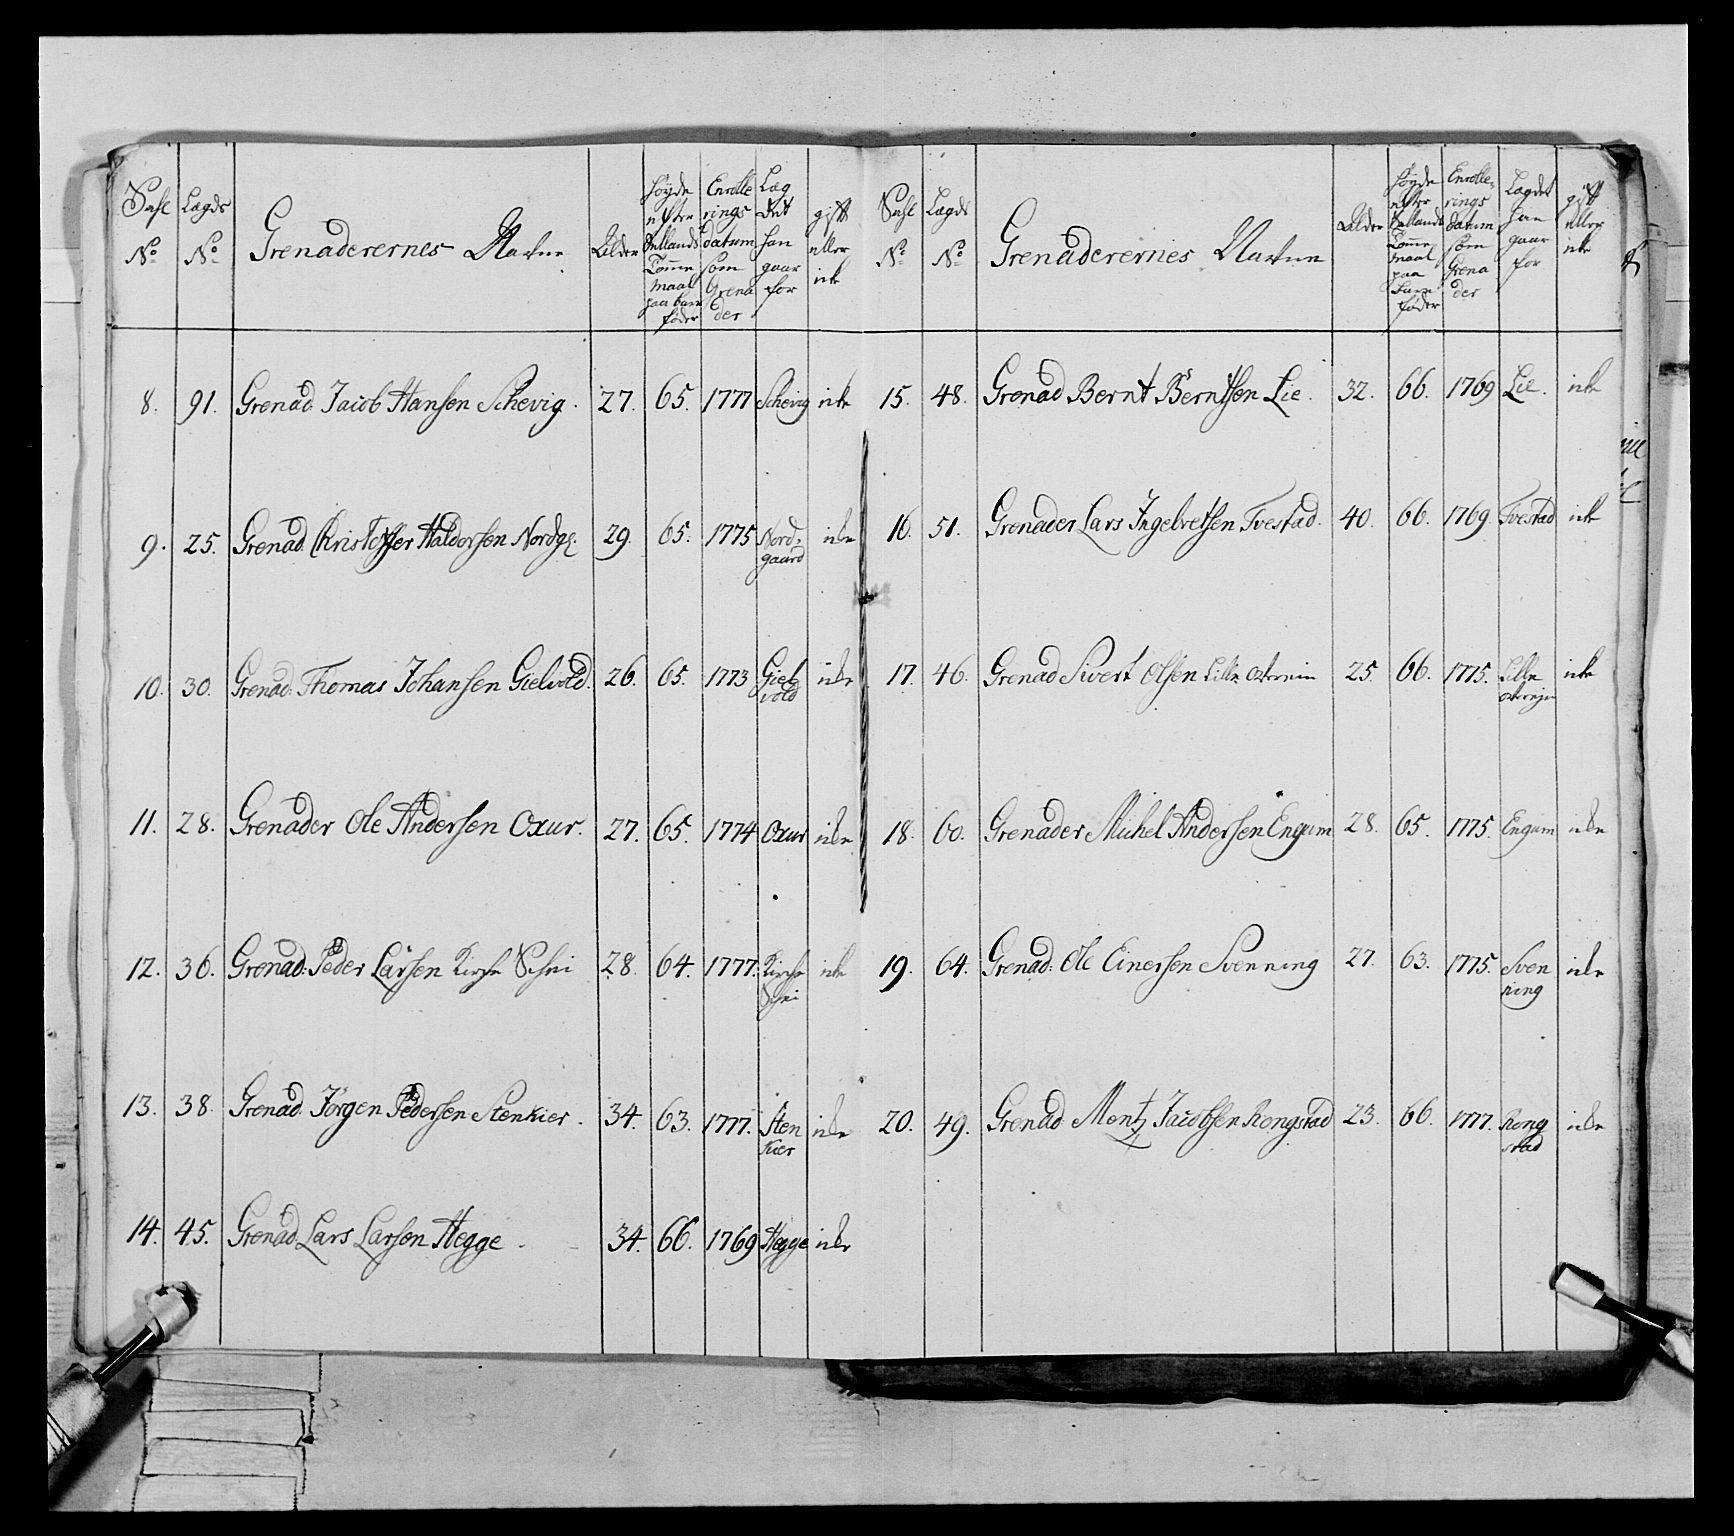 Sahl No | Lagds No | Grenaderernes Nafne | Alder | Höyde efter Sellands Tomme maal paa bare föder | Enrolle rings datum som Grena der | Læg det han gaar for | gift eller icke
8. | 91. | Grenad. Jacob Hansen Schevig. | 27. | 65. | 1777 | Schevig | icke
9. | 25. | Grenad. Christoffer Haldorsen Nordg: | 29. | 65. | 1775 | Nord-gaard | icke
10. | 30. | Grenad. Thomas Johansen Gielvold. | 26. | 65. | 1773 | Giel vold | icke
11. | 28. | Grenader Ole Andersen Oxur. | 27. | 65. | 1774 | Oxur | icke
12. | 36. | Grenad. Peder Larsen Kirche Schei | 28. | 64. | 1777. | Kirche Schei | icke
13. | 38. | Grenad. Jörgen Pedersen Stenkier. | 34. | 63. | 1777. | Sten kier | icke
14. | 45. | Grenad. Lars Larsen Hegge | 34. | 66. | 1769 | Hegge | icke
Sahl No | Lagds No | Grenaderernes Nafne | Alder | Höyde efter Sellands Tomme maal paa bare föder | Enrolle-rings datum som Grena der | Lægdet han gaar for | gift eller icke
15. | 48. | Grenad Bernt Berntsen Lie. | 32. | 66. | 1769 | Lie. | icke
16. | 51. | Grenader Lars Ingebretsen Tvestad. | 40. | 66. | 1769. | Tvestad | icke
17. | 46. | Grenad Sivert Olsen Lille | 25. | 66. | 1775. | Lille | icke
18. | 60. | Grenader Michel Andersen Engum | 28. | 65. | 1775. | Engum | icke
19. | 64. | Grenad. Ole Einersen Svenning | 27. | 63. | 1775. | Sven ning | icke
20. | 49. | Grenad. Mentz Jacobsen Rongstad | 23. | 66. | 1777. | Rong stad | icke